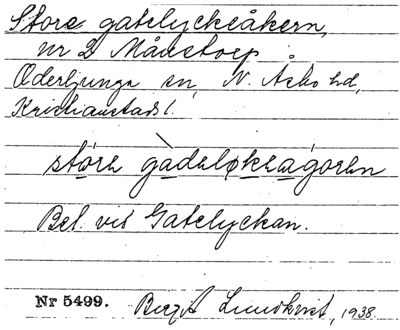 Store gatelyckeåkern,
nr 2 Månstorp
Oderljunga sn, N. Åsbo hd,
Kristianstads l.
støre gàdeløkeågoren
Bel. vid Gatelyckan.
Nr 5499. Birgit Lundkvist, 1938